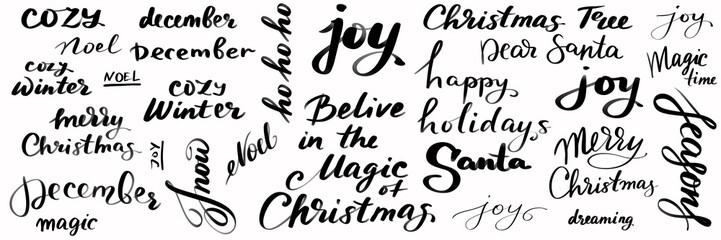 cozy
Noel
cozy
Winter
NOEL
merry
Christmas
JOY
December
magic
december
December
cozy
Winter
Snow
Noel
ho ho ho
joy
Belive
in the
Magic
of
Christmas
Christmas Teree
Dear Santa
happy
holidays
Santa
joy
joy
Magic
time
joy
Merry
Christmas
dreaming
Seasons